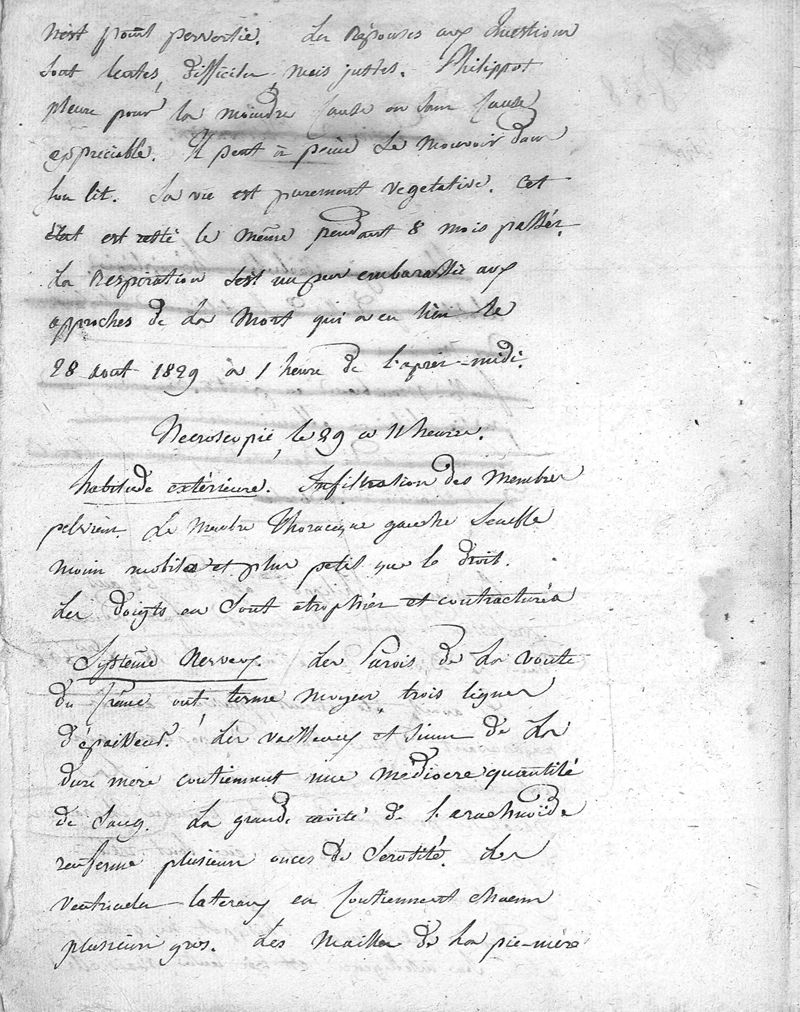 n'est point pervertie. Les Réponses aux Questions
sont lentes, difficiles, mais justes. Philippot
pleure pour la moindre Cause ou sans Cause
appreciable. Il peut à peine se mouvoir dans
son lit. Sa vie est purement vegetative. Cet
état est resté le même pendant 8 mois passés.
La Respiration s'est un peu embarassée aux
approches de la Mort qui a eu lieu le
28 aout 1829 à 1 heure de l'après-midi.
Necroscopie, le 29 a 11 heures.
habitude extérieure. Infiltration des Membres
pelviens. Le Membre Thoracique gauche Semble
moins mobile et plus petit que le droit.
Les doigts en sont atrophiés et contracturés
Système Nerveux. Les Parois de la voute
du Crâne ont terme moyen, trois lignes
d'épaisseur. Les vaisseaux et sinus de la
dure mere contiennent une mediocre quantité
de Sang. La grande cavité de l'arachnoïde
renferme plusieurs onces de Serosité. Les
Ventricules lateraux en Contiennent chacun
plusieurs gros. Les Mailles de la pie-mère